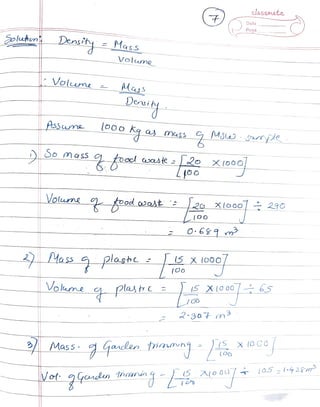 7
classmate
Date
Page
Solution:- Density = Mass
Volume
∴ Volume = Mass
Density.
Assume 1000 kg as mass of MSW sample
1) So mass of food waste = [20/100 X1000]
Volume of food waste = [20/100 X1000] ÷ 290
= 0.689 m³
2) Mass of plastic = [15/100 X 1000]
Volume of plastic = [15/100 X1000] ÷ 65
= 2.307 m³
3) Mass. of Garden trimming = [15/100 X 1000]
Vol. of Garden trimming = [15/100 X1000] ÷ 105 = 1.428 m³